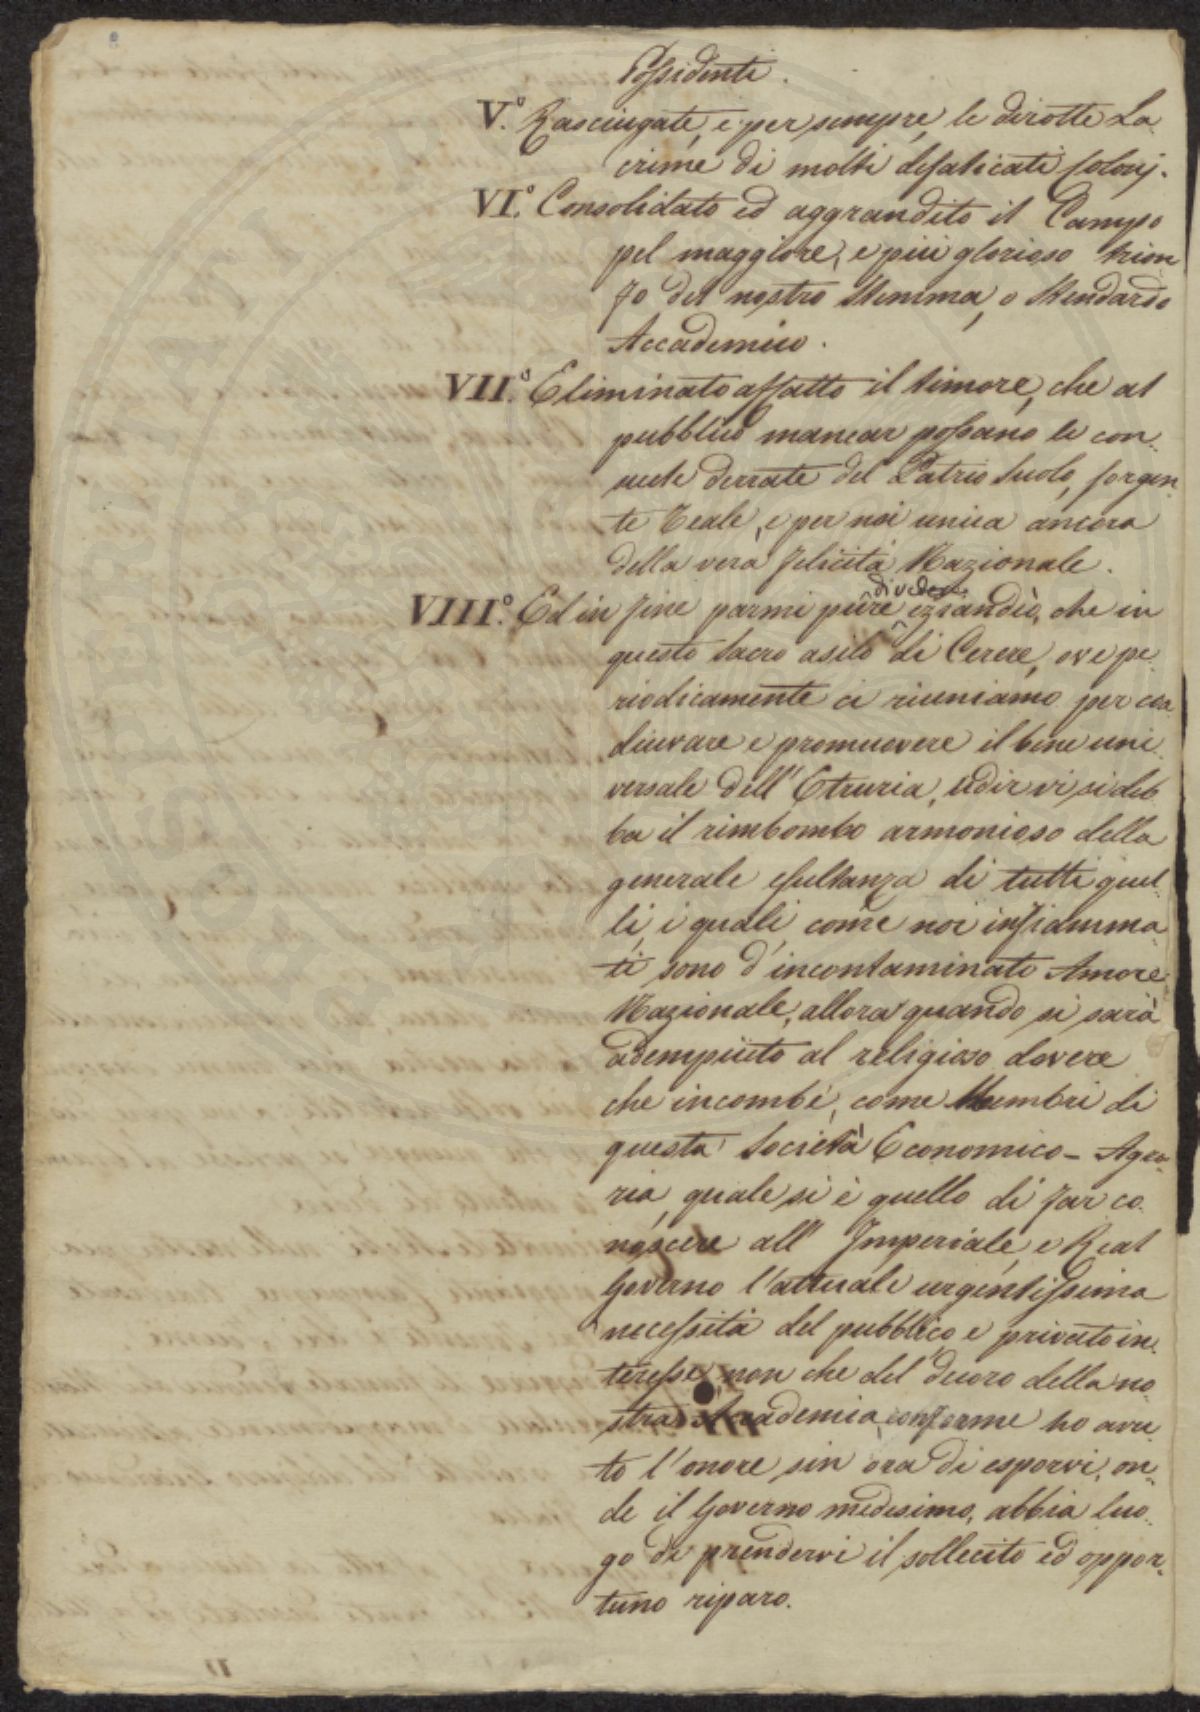 Possidenti.
V.° Rasciugate, e per sempre, le dirotte La
crime di molti defaticati Coloni.
VI.° Consolidato ed aggrandito il Campo
pel maggiore, e piu glorioso trion
fo del nostro Stemma, o Stendardo
Accademico.
VII.° Eliminato affatto il timore, che al
pubblico mancar possano le con-
suete derrate del Patrio Suolo, sorgen-
te Reale, e per noi unica ancora
della vera felicità Nazionale.
VIII.° Ed in fine parmi pure di vedere eziandìo, che in
questo Sacro asilo di Cerere, ove pe-
riodicamente ci riuniamo per coa-
diuvare e promuovere il bene uni-
versale dell' Etruria, udir vi si deb-
ba il rimbombo armonioso della
generale esultanza di tutti quel-
li, i quali come noi infiamma-
ti sono d'incontaminato Amore
Nazionale, allora quando si sarà
adempiuto al religioso dovere
che incombe, come Membri di
questa Società Economico-Agra-
ria, quale si è quello di far co-
noscere all' Imperiale, e Real
Governo l'attuale urgentissima
necessità del pubblico, e privato in-
teresse, non che del decoro della no-
stra Accademia, conforme ho avu-
to l'onore sin ora di esporvi, on-
de il Governo medesimo, abbia luo-
go di prendervi il sollecito ed oppor-
tuno riparo.